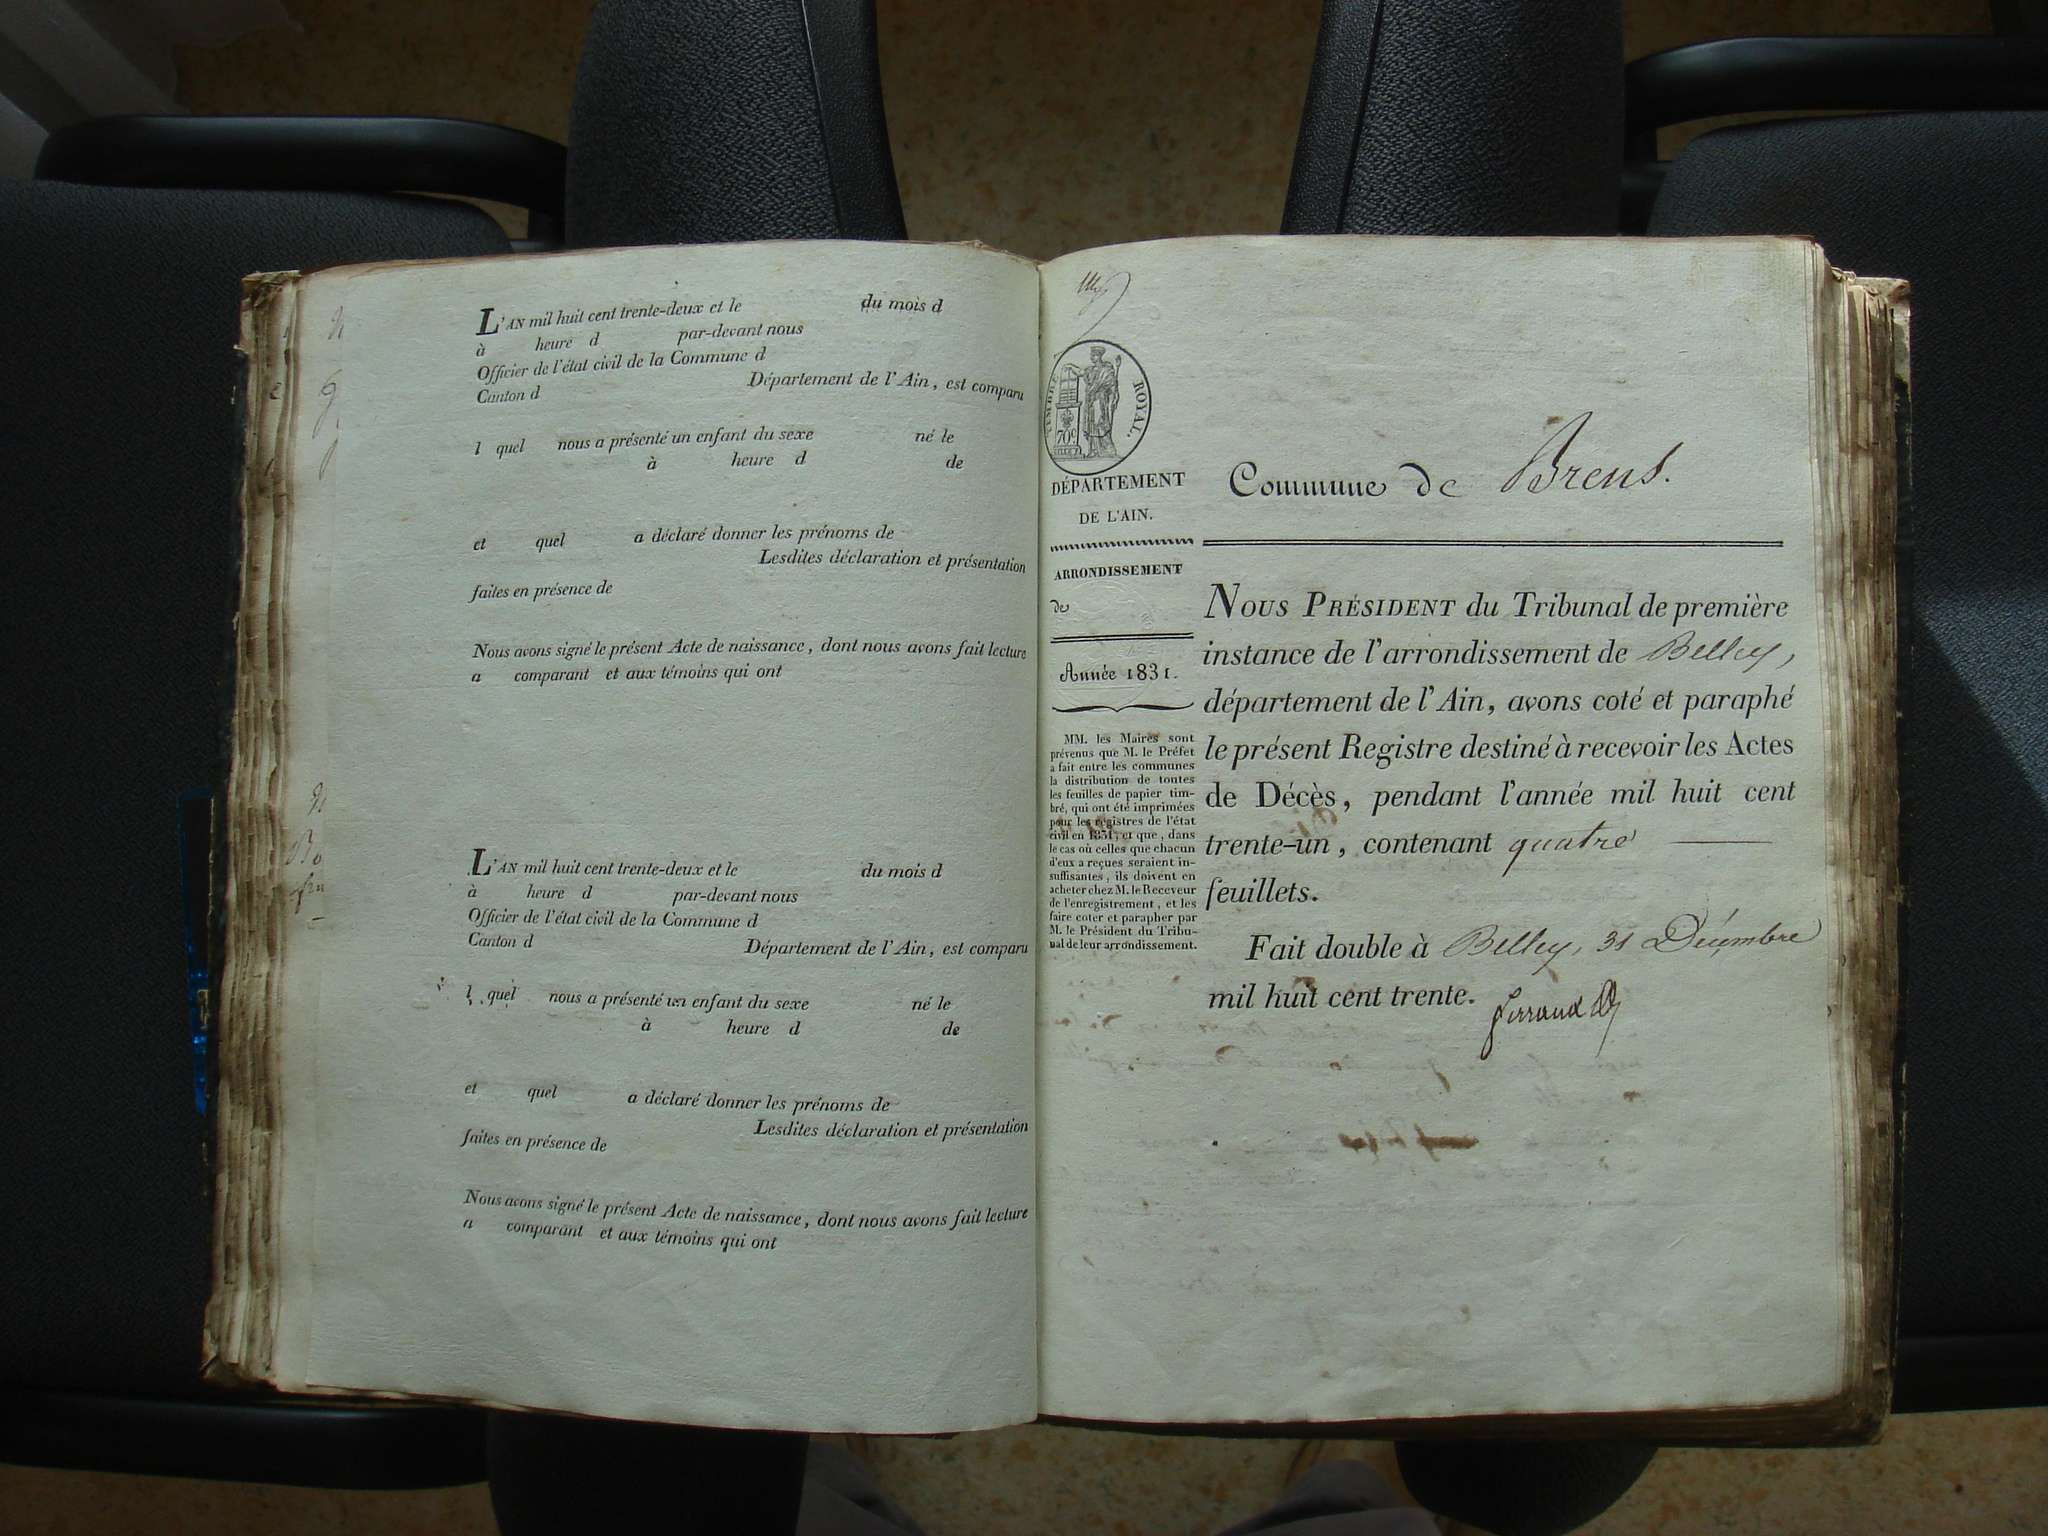 L'AN mil huit cent trente-deux et le du mois d
à heure d par-devant nous
Officier de l'état civil de la Commune d
Canton d Département de l'Ain, est comparu
l quel nous a présenté un enfant du sexe né le
à heure d de
et quel a déclaré donner les prénoms de
Lesdites déclaration et présentation
faites en présence de
Nous avons signé le présent Acte de naissance, dont nous avons fait lecture
a comparant et aux témoins qui ont
L'AN mil huit cent trente-deux et le du mois d
à heure d par-devant nous
Officier de l'état civil de la Commune d
Canton d Département de l'Ain, est comparu
l quel nous a présenté un enfant du sexe né le
à heure d de
et quel a déclaré donner les prénoms de
Lesdites déclaration et présentation
faites en présence de
Nous avons signé le présent Acte de naissance, dont nous avons fait lecture
a comparant et aux témoins qui ont
TIMBRE ROYAL.
70c
DÉPARTEMENT
DE L'AIN.
ARRONDISSEMENT
de
Année 1831.
MM. les Maires sont
prévenus que M. le Préfet
a fait entre les communes
la distribution de toutes
les feuilles de papier tim-
bré, qui ont été imprimées
pour les registres de l'état
civil en 1831, et que, dans
le cas où celles que chacun
d'eux a reçues seraient in-
suffisantes, ils doivent en
acheter chez M. le Receveur
de l'enregistrement, et les
faire coter et parapher par
M. le Président du Tribu-
nal de leur arrondissement.
Commune de Brens.
NOUS PRÉSIDENT du Tribunal de première
instance de l'arrondissement de Belley,
département de l'Ain, avons coté et paraphé
le présent Registre destiné à recevoir les Actes
de Décès, pendant l'année mil huit cent
trente-un, contenant quatre
feuillets.
Fait double à Belley, 31 Décembre
mil huit cent trente.
Ferrand